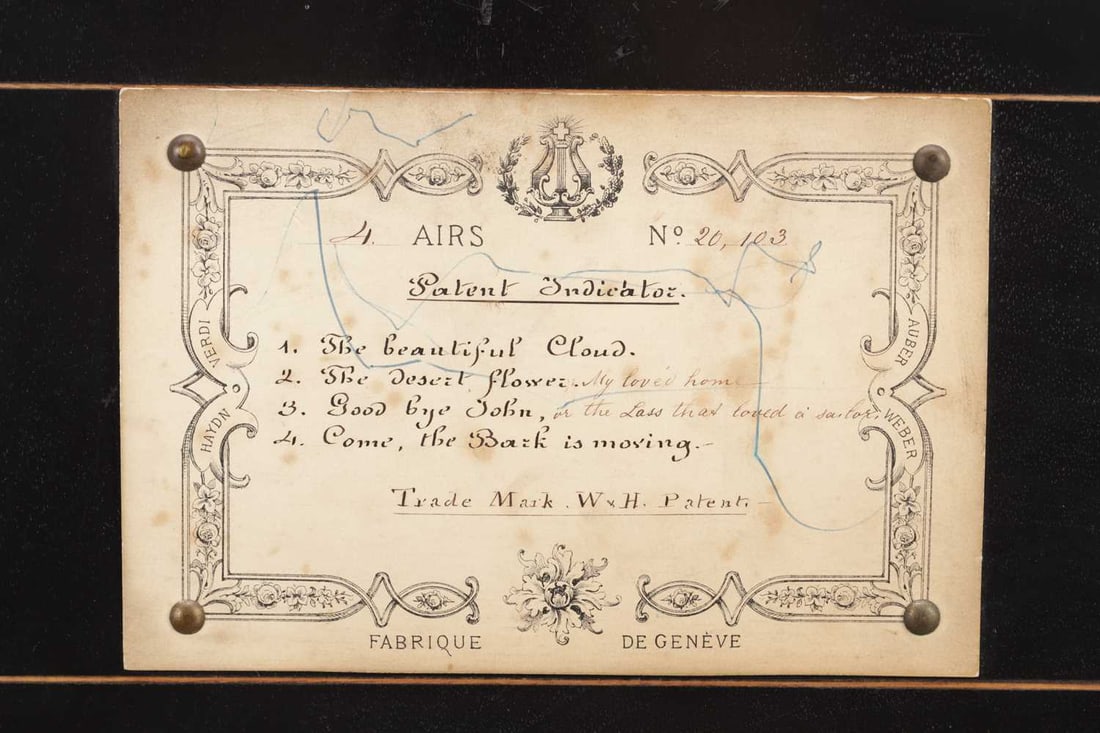 4. AIRS Nº 20,103
Patent Indicator.
VERDI
AUBER
HAYDN
WEBER
1. The beautiful Cloud.
2. The desert flower. or My loved home
3. Good bye John, or the Lass that loved a sailor.
4. Come, the Bark is moving.-
Trade Mark. W & H. Patent.-
FABRIQUE DE GENÈVE